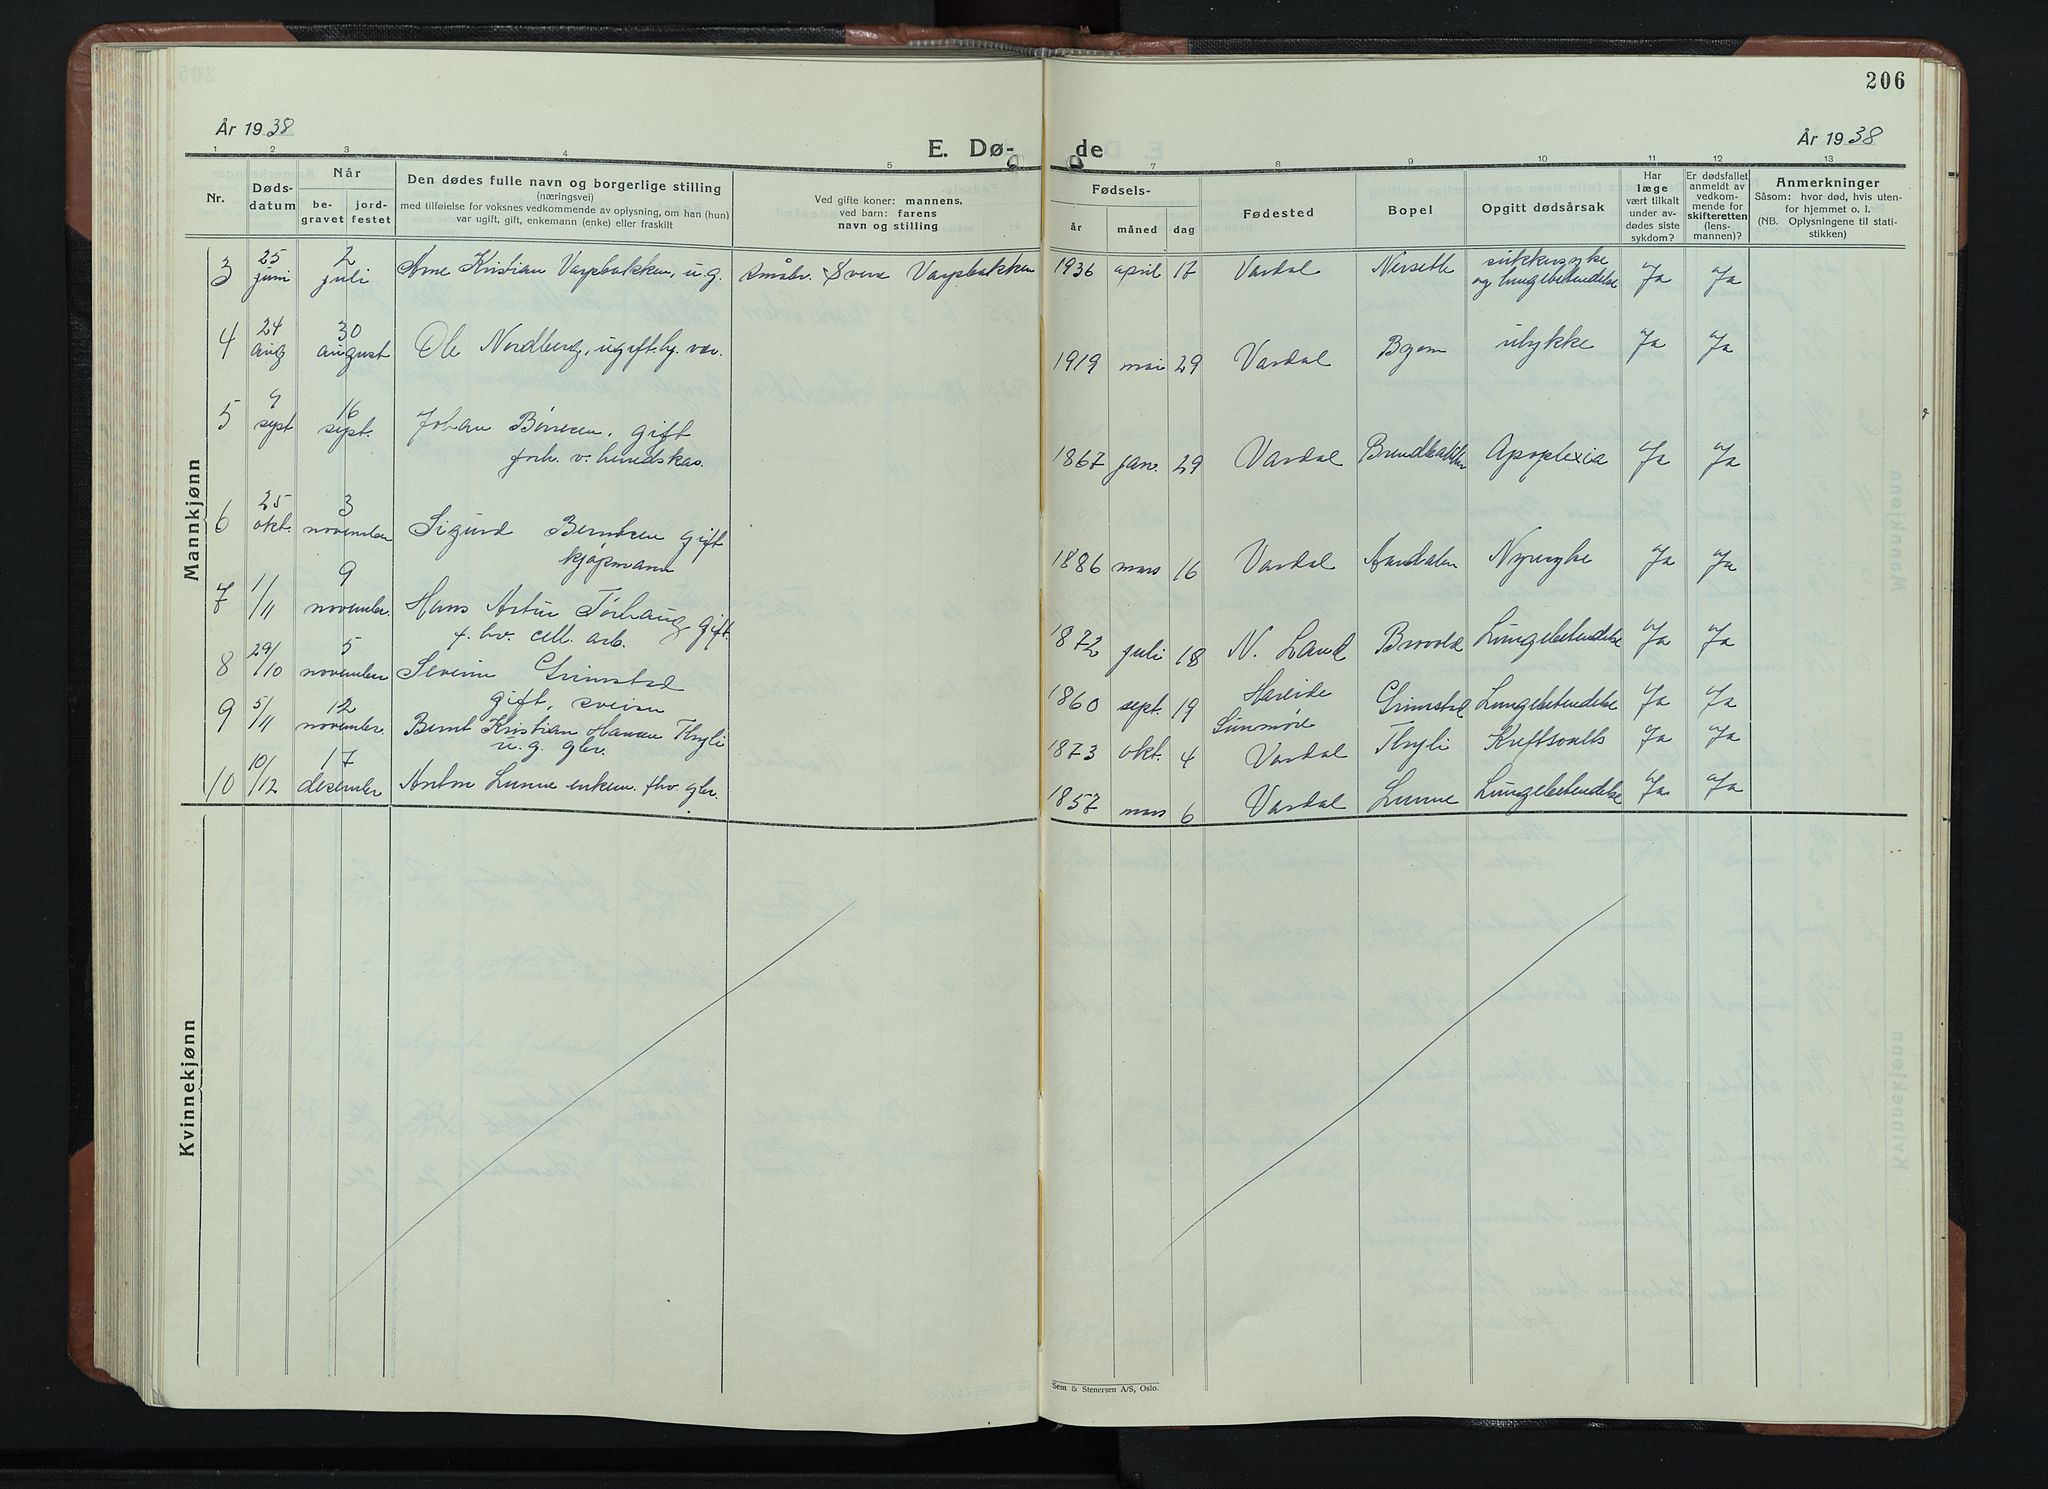 206
År 1938
E. Dø-
de
År 1938
1 2 3 4 5 7 8 9 10 11 12 13
Nr.
Døds-
datum
Når
be-
gravet
jord-
festet
Den dødes fulle navn og borgerlige stilling
(næringsvei)
med tilføielse for voksnes vedkommende av oplysning, om han (hun)
var ugift, gift, enkemann (enke) eller fraskilt
Ved gifte koner: mannens,
ved barn: farens
navn og stilling
Fødsels-
år måned dag
Fødested
Bopel
Opgitt dødsårsak
Har
læge
vært tilkalt
under av-
dødes siste
sykdom?
Er dødsfallet
anmeldt av
vedkom-
mende for
skifteretten
(lens-
mannen)?
Anmerkninger
Såsom: hvor død, hvis uten-
for hjemmet o. l.
(NB. Oplysningene til stati-
stikken)
Mannkjønn
3 25 juni 2 juli Arne Kristian Varpbakken, u.g. småbr. Sverre Varpbakken 1936 april 17 Vardal Nerseth sukkersyke
og lungebetendelse Ja Ja
4 24 aug 30 august Ole Nordberg, ugift. 1919 mai 29 Vardal ulykke Ja Ja
5 9 sept 16 sept. Johan gift 1867 jan. 29 Vardal Apoplexia Ja Ja
forh. v. herredskas.
6 25 okt. 3 november Sigurd Berntsen gift 1886 mars 16 Vardal Nyresyke Ja Ja
kjøpmann
7 1/11 9 november. Hans Artur gift. 1872 juli 18 N. Land Lungebetendelse Ja Ja
f. hv. cell. arb.
8 29/10 5 november Severin Grimstad 1860 sept. 19 Hareide Grimstad Lungebetendelse Ja Ja
gift, Sunnmøre
9 5/11 12 november. Bernt Kristian Hansen Thyli 1873 okt. 4 Vardal Thyli Kreftsvulst Ja Ja
u. g. gbr.
10 10/12 17 desember Anton Lunne enkem. fhv gbr. 1857 mars 6 Vardal Lunne Lungebetendelse Ja Ja
Kvinnekjønn
Sem & Stenersen A/S, Oslo.